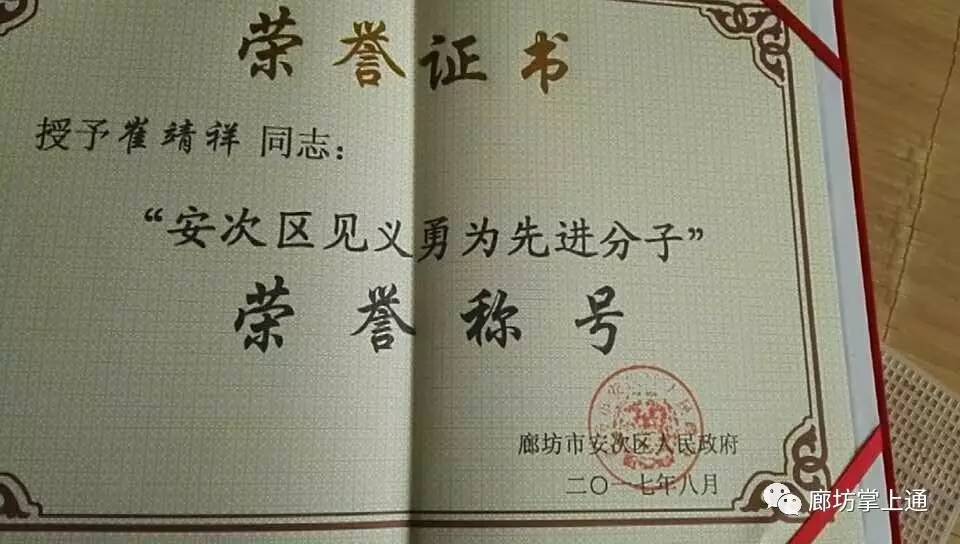 荣誉证书
授予崔靖祥同志：
“安次区见义勇为先进分子”
荣誉称号
廊坊市安次区人民政府
二〇一七年八月
廊坊掌上通